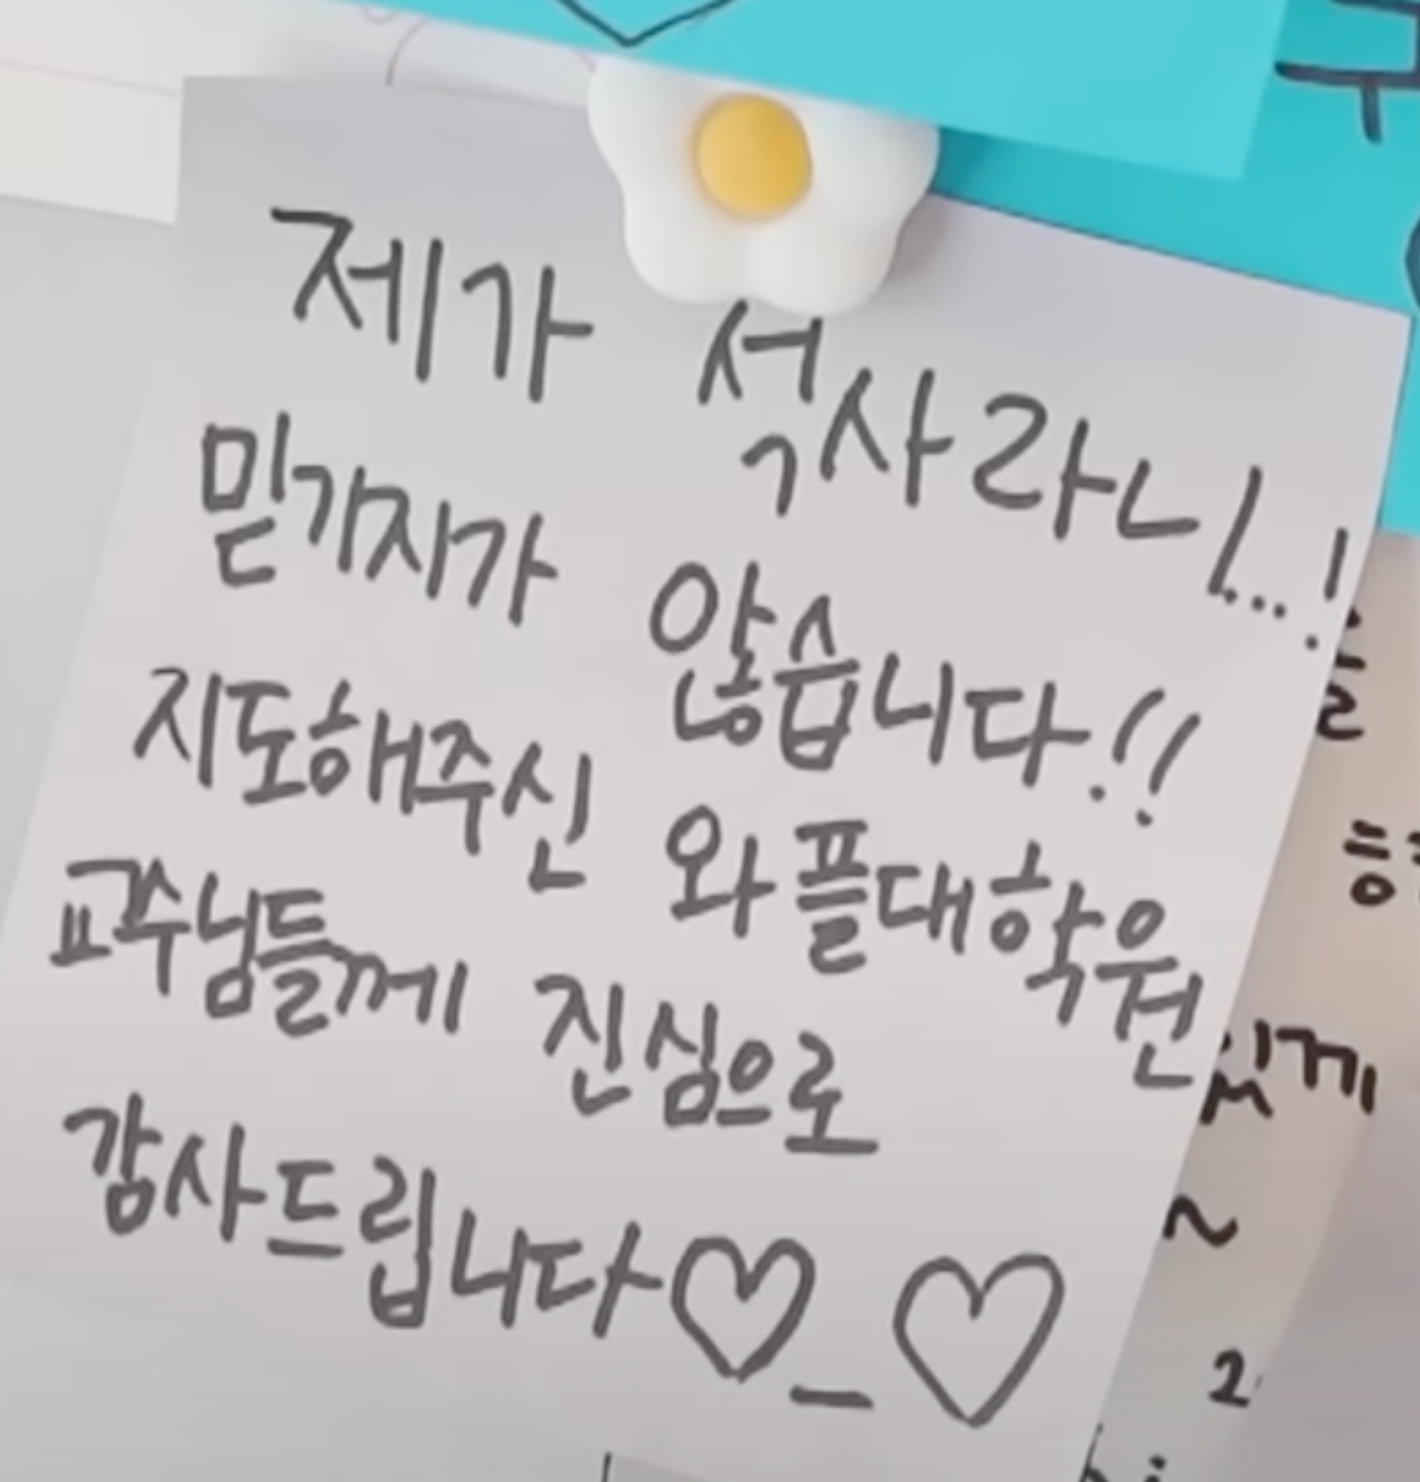 제가 석사라니...!
믿기지가 않습니다!!
지도해주신 와플대학원
교수님들께 진심으로
감사드립니다♡_♡